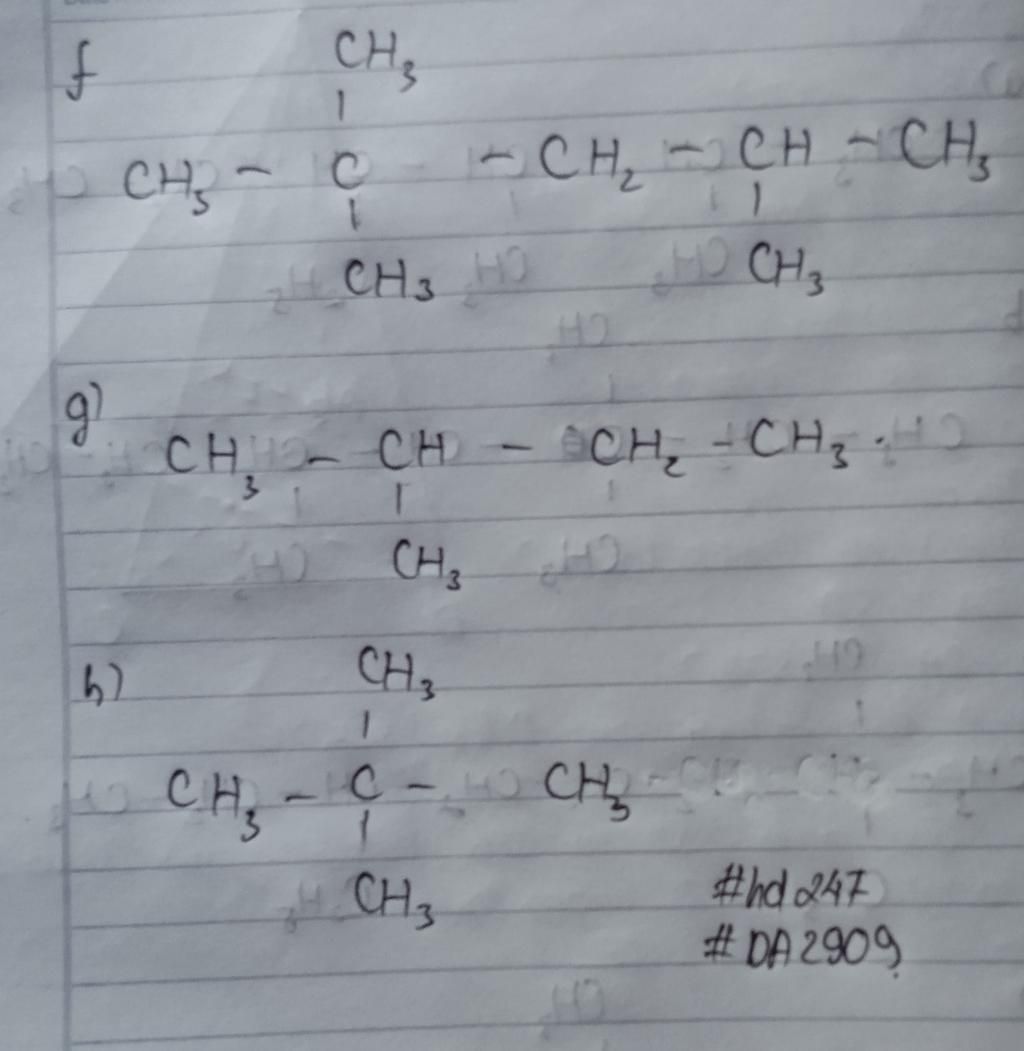 f
CH₃
|
CH₃ - C - CH₂ - CH - CH₃
| |
CH₃ CH₃
g)
CH₃ - CH - CH₂ - CH₃.
|
CH₃
h)
CH₃
|
CH₃ - C - CH₃
|
CH₃
#hd247
#DA2909